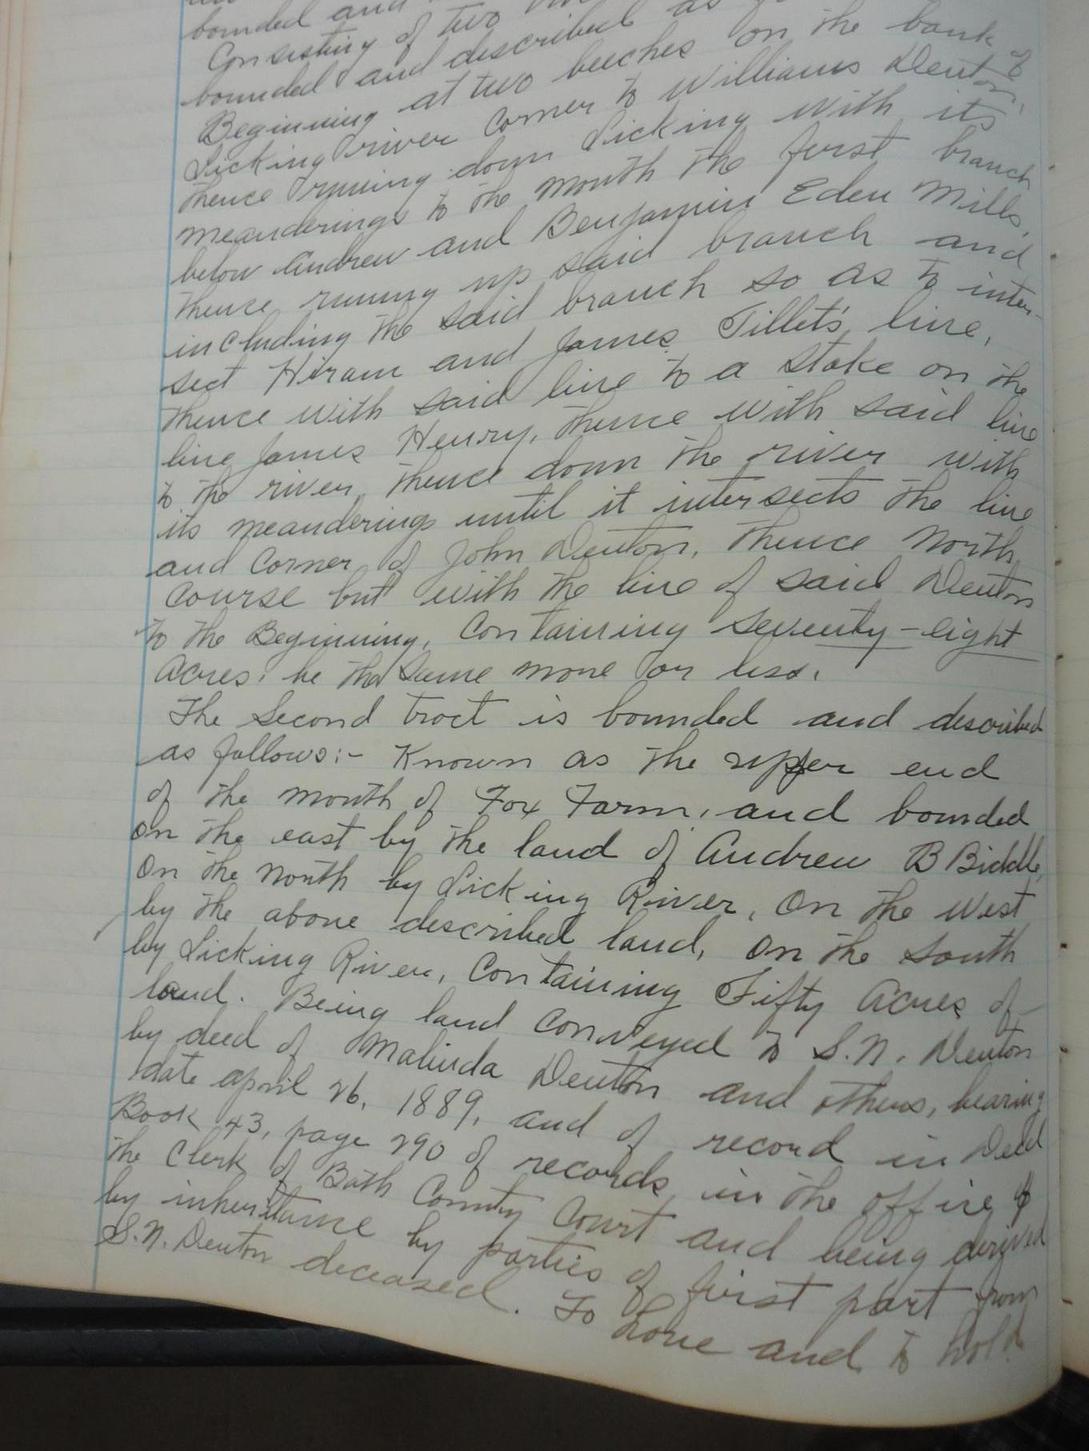 bounded and
Consisting of two
bounded and described as
Beginning at two beeches on the bank of
Licking river corner to Williams Denton,
thence runing down Licking with its
meanderings to the mouth the first branch
below Andrew and Benjamin Eden Mills,
thence runing up said branch and
including the said branch so as to inter-
sect Hiram and James Tillet's line,
thence with said line to a stake on the
line James Henry, thence with said line
to the river, thence down the river with
its meanderings until it intersects the line
and corner of John Denton, thence North
course but with the line of said Denton
to the Beginning, Containing seventy-eight
Acres: be the same more or less.
The second tract is bounded and described
as follows:- Known as the upper end
of the mouth of Fox Farm, and bounded
on the east by the land of Andrew B Biddle,
on the North by Licking River, on the West
by the above described land, on the South
by Licking River, Containing Fifty Acres of
land. Being land conveyed to S.N. Denton
by deed of Malinda Denton and others, bearing
date april 26, 1889, and of record in Deed
Book 43, page 290 of records, in the office of
the Clerk of Bath County Court and being derived
by inheritance by parties of first part from
S.N. Denton deceased. To have and to hold